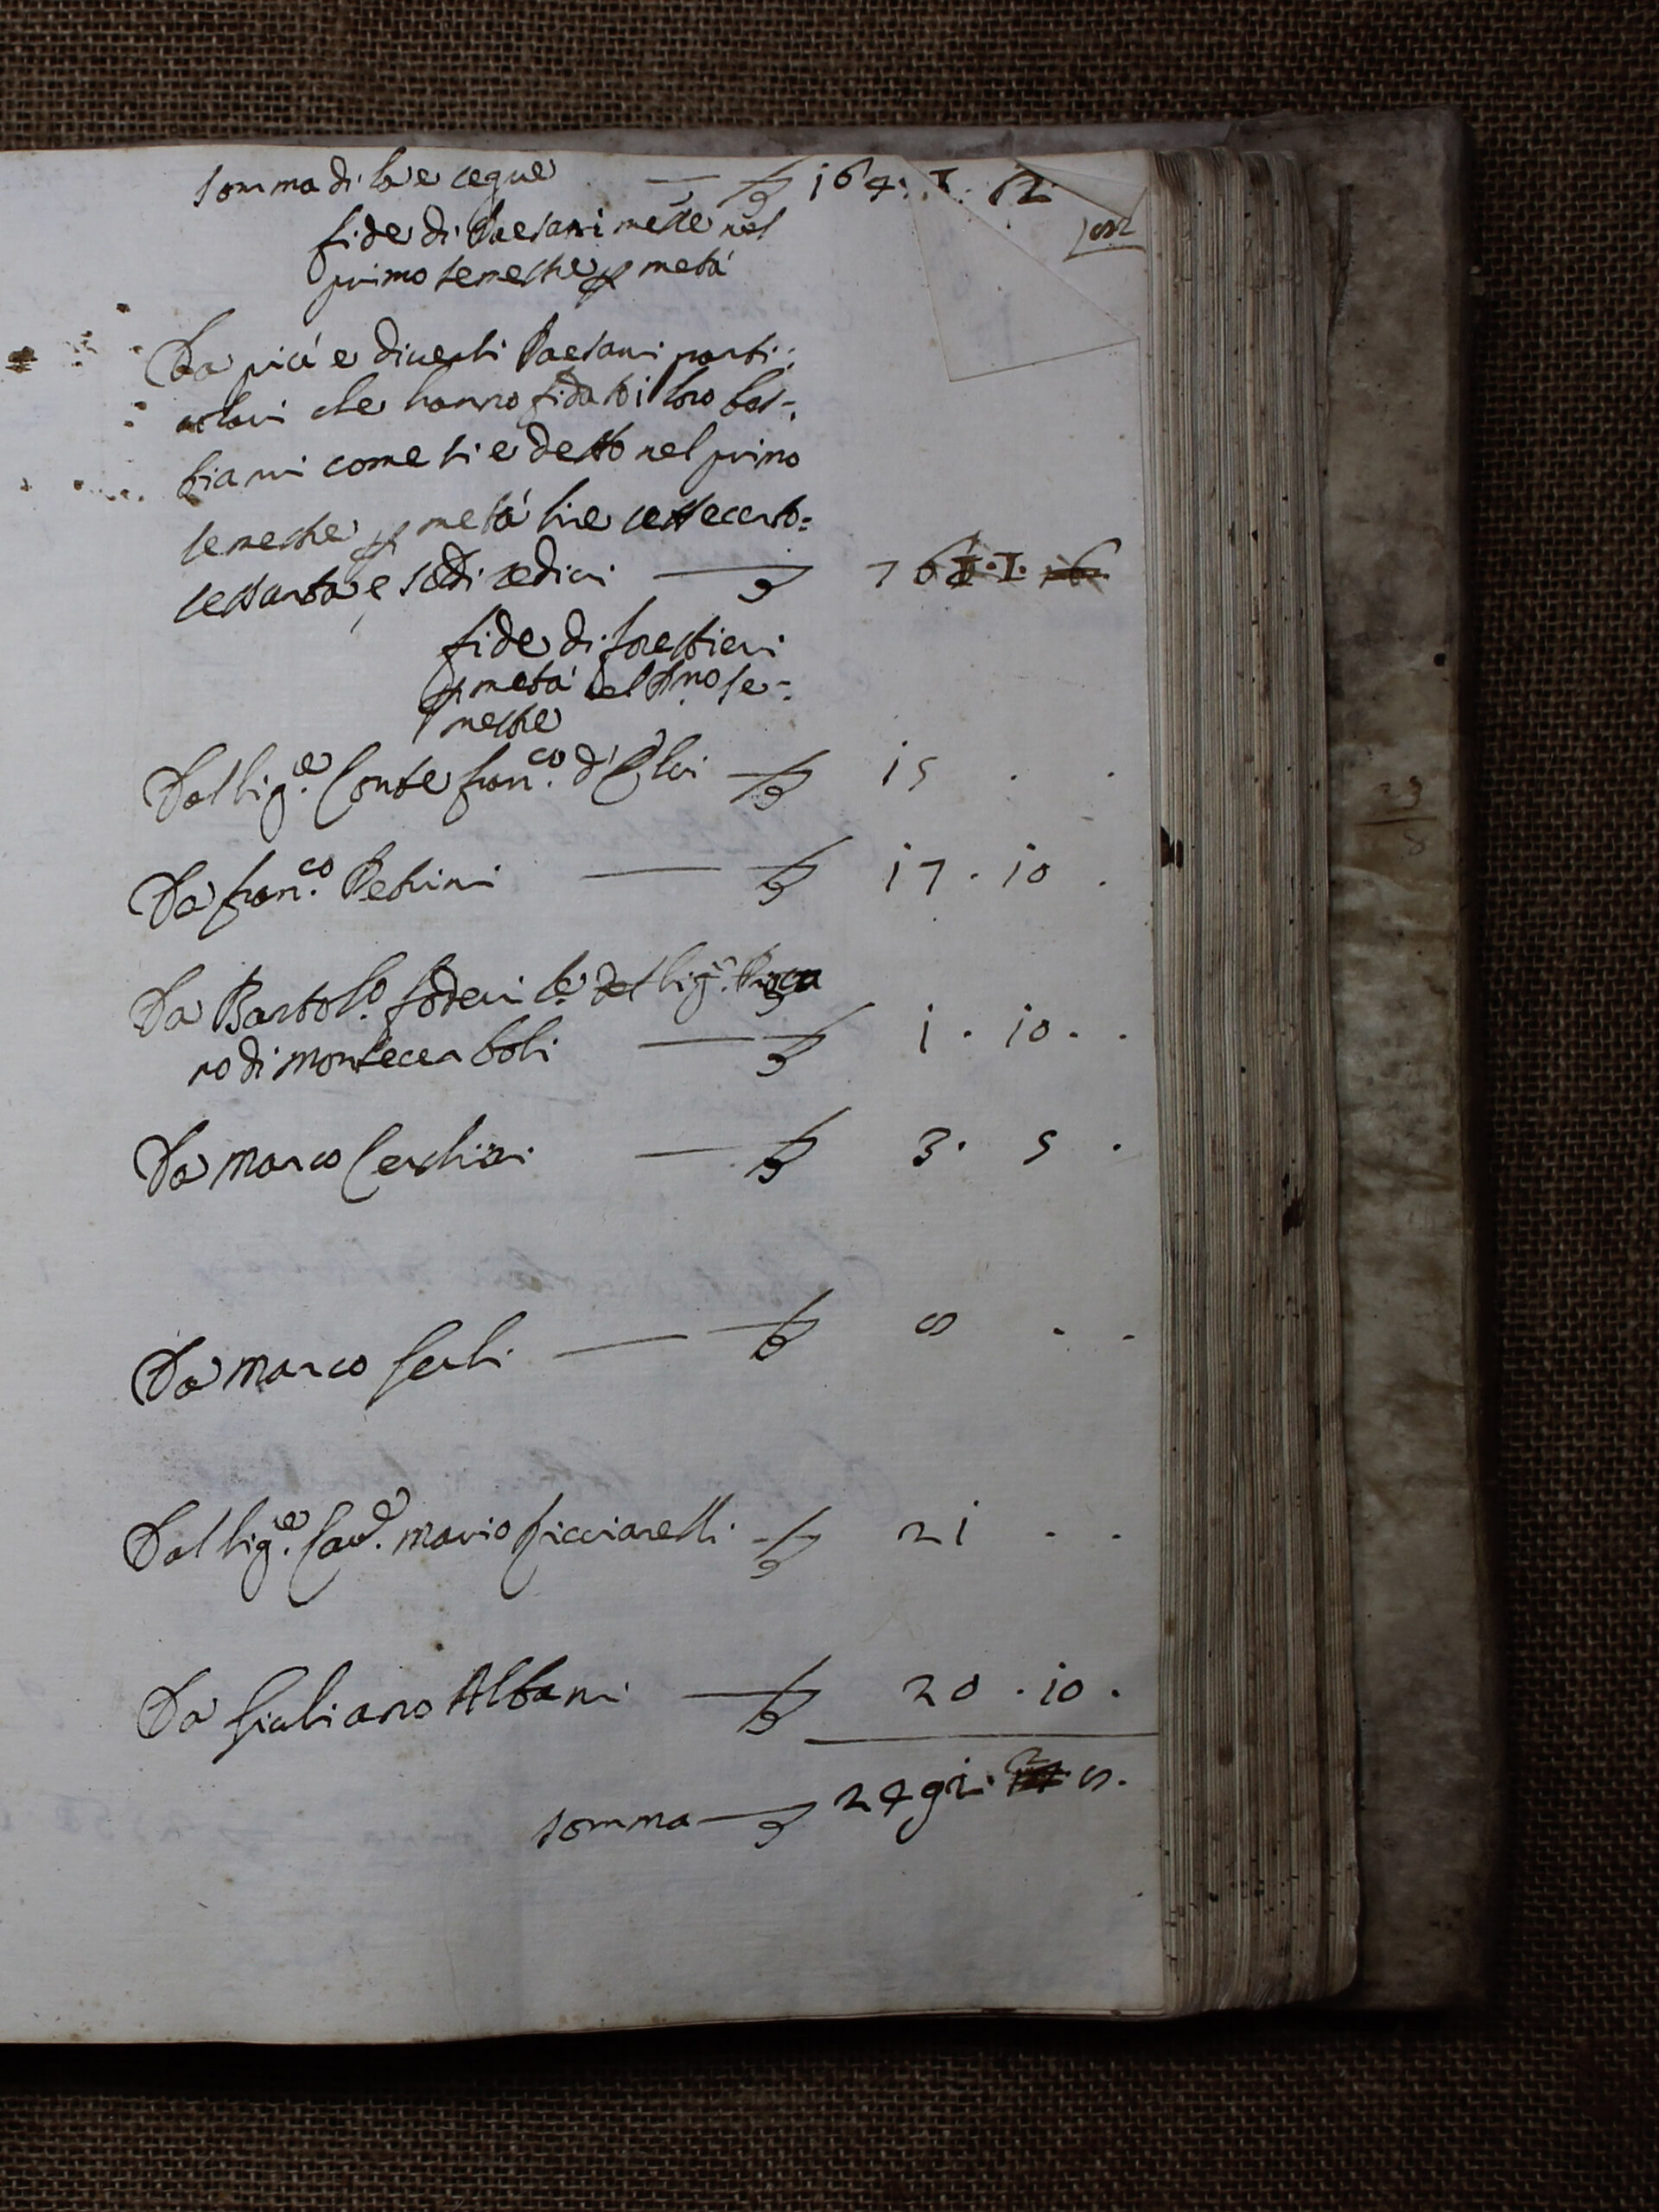 somma di la e segue — £ 164 . I .
fide di Paesani messe nel
primo semestre p metà
Da più e diversi Paesani parti:
colari che hanno fidato i loro bes-
tiami come si e detto nel primo
semestre p metà lire settecento:
sessanta e soldi sedici — 76 . I .
fide di forestieri
p metà del Pmo se-
mestre
Dal Sig.re Conte fran.co d'Elci — £ 15 . .
Da fran.co Petrini — £ 17 . 10 .
Da Bartol.o foderi del Sig.
no di montecerboli — £ 1 . 10 . .
Da Marco Cerchiai — £ 3 . 5 .
Da Marco Serli — £ 8 . .
Dal Sig.re Cav.e Mario ficciarelli £ 21 . .
Da Giuliano Albani — £ 20 . 10 .
somma — 2491 . 8 .